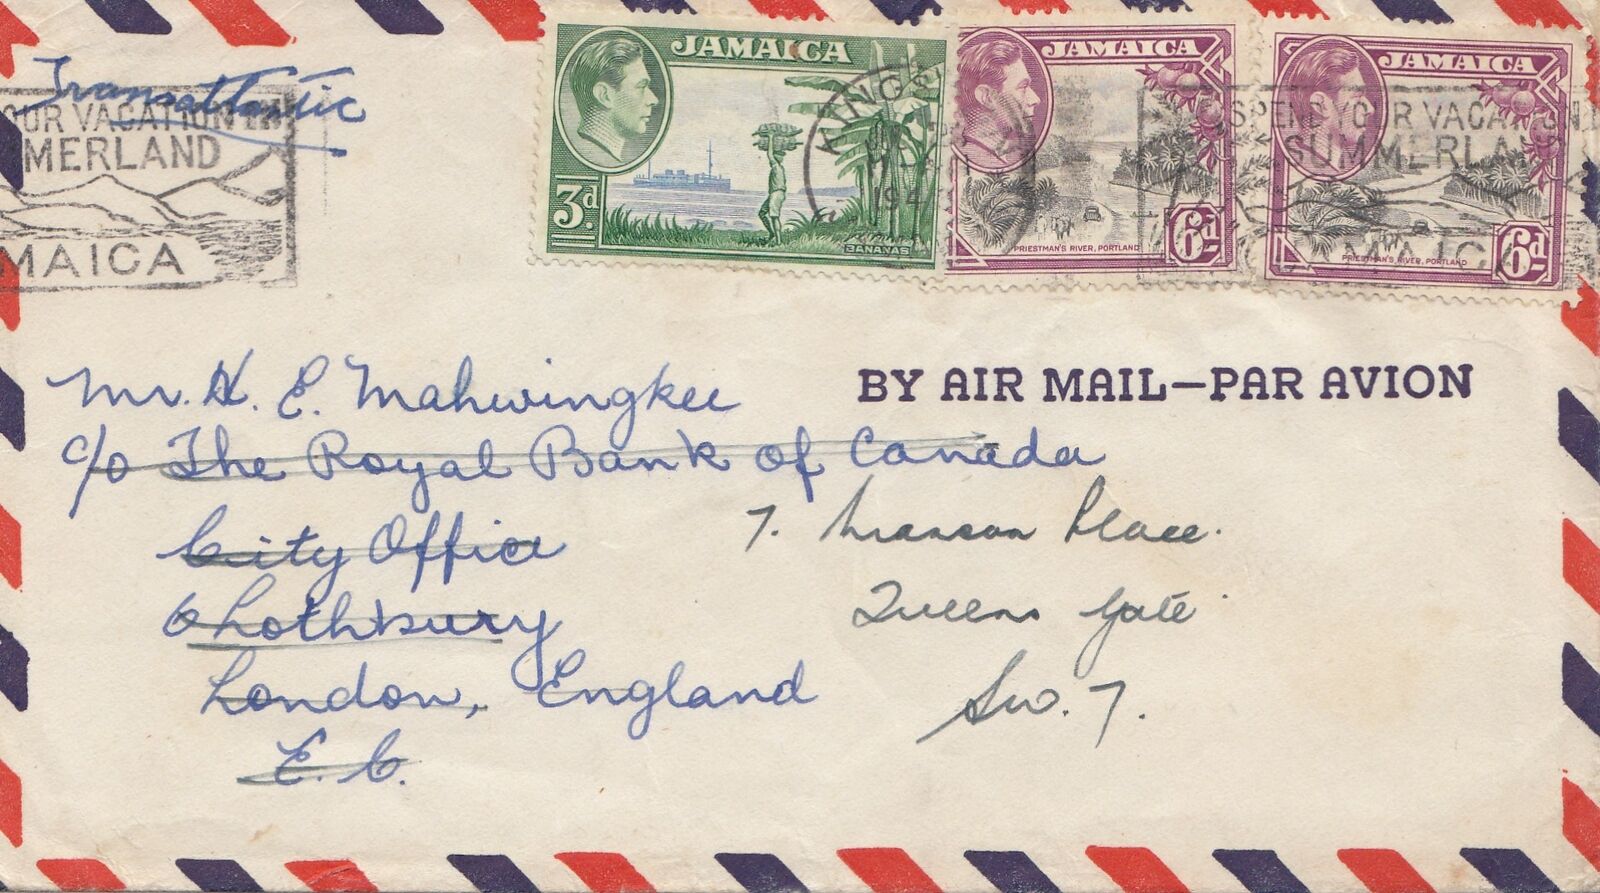 Transatlantic
OUR VACATION IN
MERLAND
MAICA
JAMAICA
3d
BANANAS
KINGS
194
JAMAICA
PRIESTMAN'S RIVER, PORTLAND
6d
JAMAICA
PRIESTMAN'S RIVER, PORTLAND
6d
SPEND YOUR VACATION IN
SUMMERLAND
MAICA
BY AIR MAIL—PAR AVION
Mr. H. E. Mahwingkee
c/o The Royal Bank of Canada
City Office
6 Lothbury
London, England
E.C.
7. Manson Place.
Queens Gate
S.W. 7.